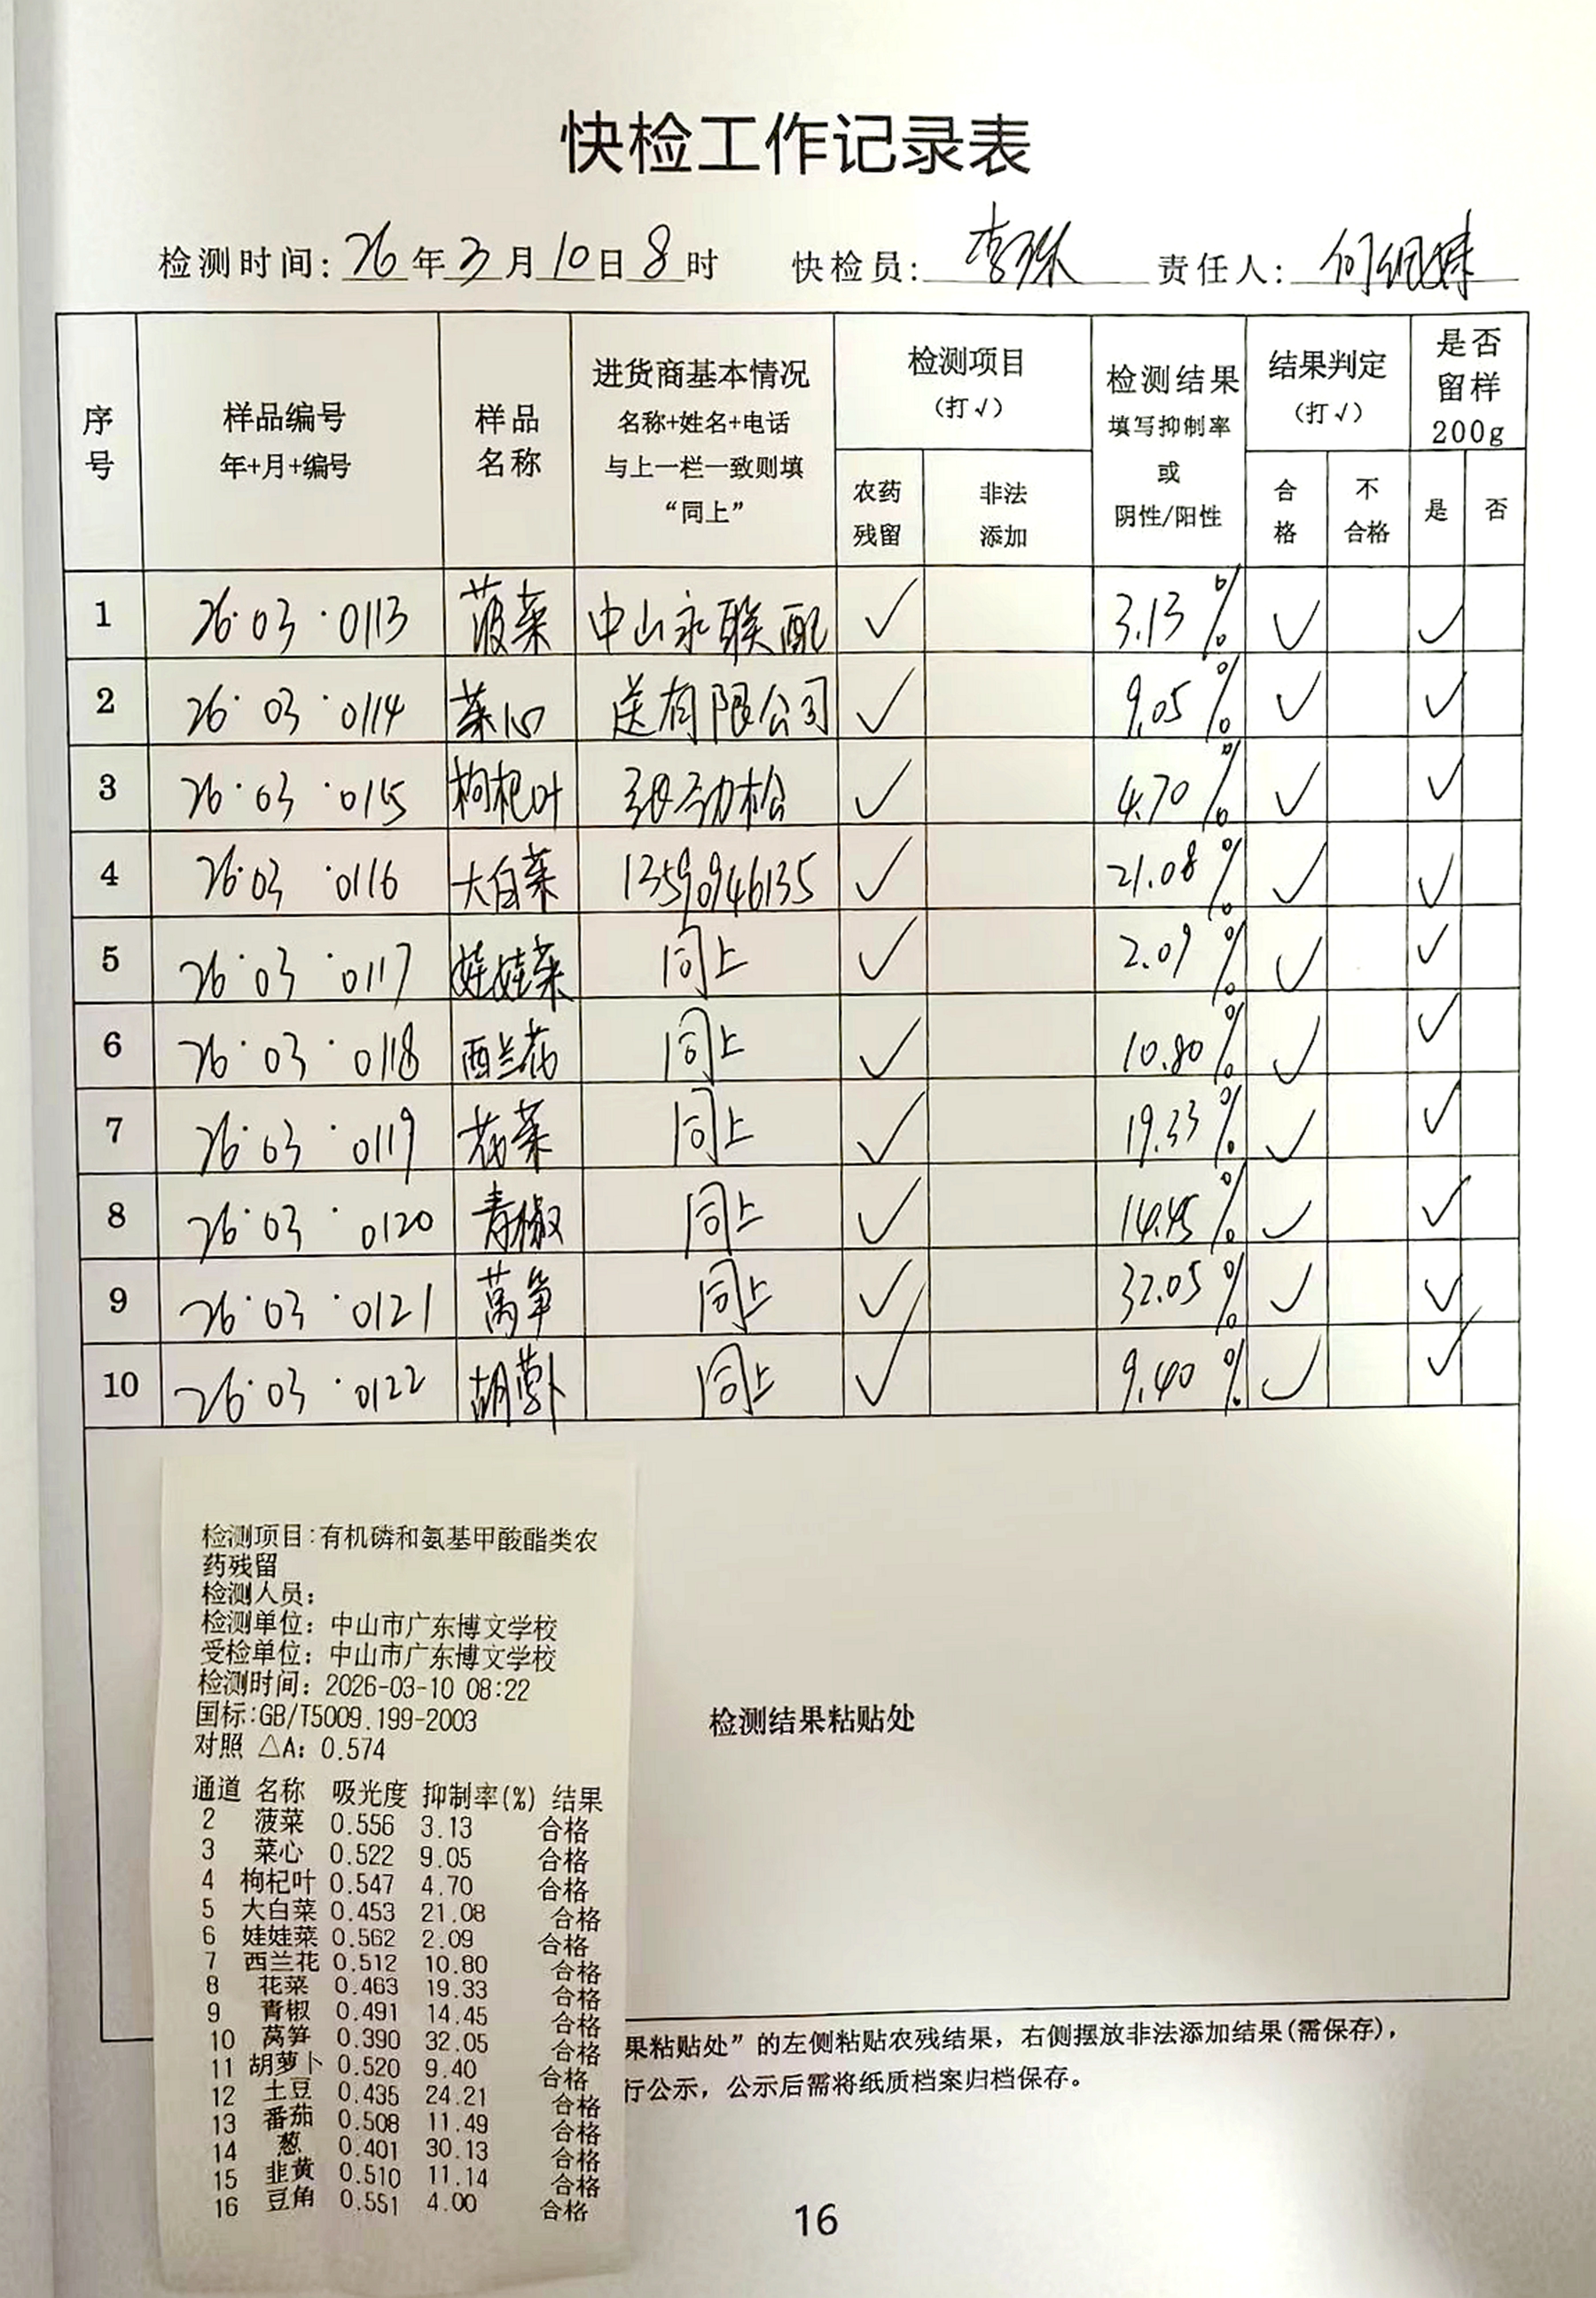 快检工作记录表
检测时间: 26年3月10日8时 快检员: 责任人:
序号 样品编号 年+月+编号 样品名称 进货商基本情况 名称+姓名+电话 与上一栏一致则填“同上” 检测项目（打√） 农药残留 非法添加 检测结果 填写抑制率或阴性/阳性 结果判定（打√） 合格 不合格 是否留样200g 是 否
1 26·03·0113 菠菜 中山永联配 ✓ 3.13% ✓ ✓
2 26·03·0114 菜心 送有限公司 ✓ 9.05% ✓ ✓
3 26·03·0115 枸杞叶 劲松 ✓ 4.70% ✓ ✓
4 26·03·0116 大白菜 ✓ 21.08% ✓ ✓
5 26·03·0117 娃娃菜 同上 ✓ 2.09% ✓ ✓
6 26·03·0118 西兰花 同上 ✓ 10.80% ✓ ✓
7 26·03·0119 花菜 同上 ✓ 19.33% ✓ ✓
8 26·03·0120 青椒 同上 ✓ 14.45% ✓ ✓
9 26·03·0121 莴笋 同上 ✓ 32.05% ✓ ✓
10 26·03·0122 胡萝卜 同上 ✓ 9.40% ✓ ✓
检测项目:有机磷和氨基甲酸酯类农
药残留
检测人员:
检测单位: 中山市广东博文学校
受检单位: 中山市广东博文学校
检测时间: 2026-03-10 08:22
国标:GB/T5009.199-2003
对照 △A: 0.574
通道 名称 吸光度 抑制率(%) 结果
2 菠菜 0.556 3.13 合格
3 菜心 0.522 9.05 合格
4 枸杞叶 0.547 4.70 合格
5 大白菜 0.453 21.08 合格
6 娃娃菜 0.562 2.09 合格
7 西兰花 0.512 10.80 合格
8 花菜 0.463 19.33 合格
9 青椒 0.491 14.45 合格
10 莴笋 0.390 32.05 合格
11 胡萝卜 0.520 9.40 合格
12 土豆 0.435 24.21 合格
13 番茄 0.508 11.49 合格
14 葱 0.401 30.13 合格
15 韭黄 0.510 11.14 合格
16 豆角 0.551 4.00 合格
检测结果粘贴处
果粘贴处”的左侧粘贴农残结果，右侧摆放非法添加结果(需保存)，
行公示，公示后需将纸质档案归档保存。
16